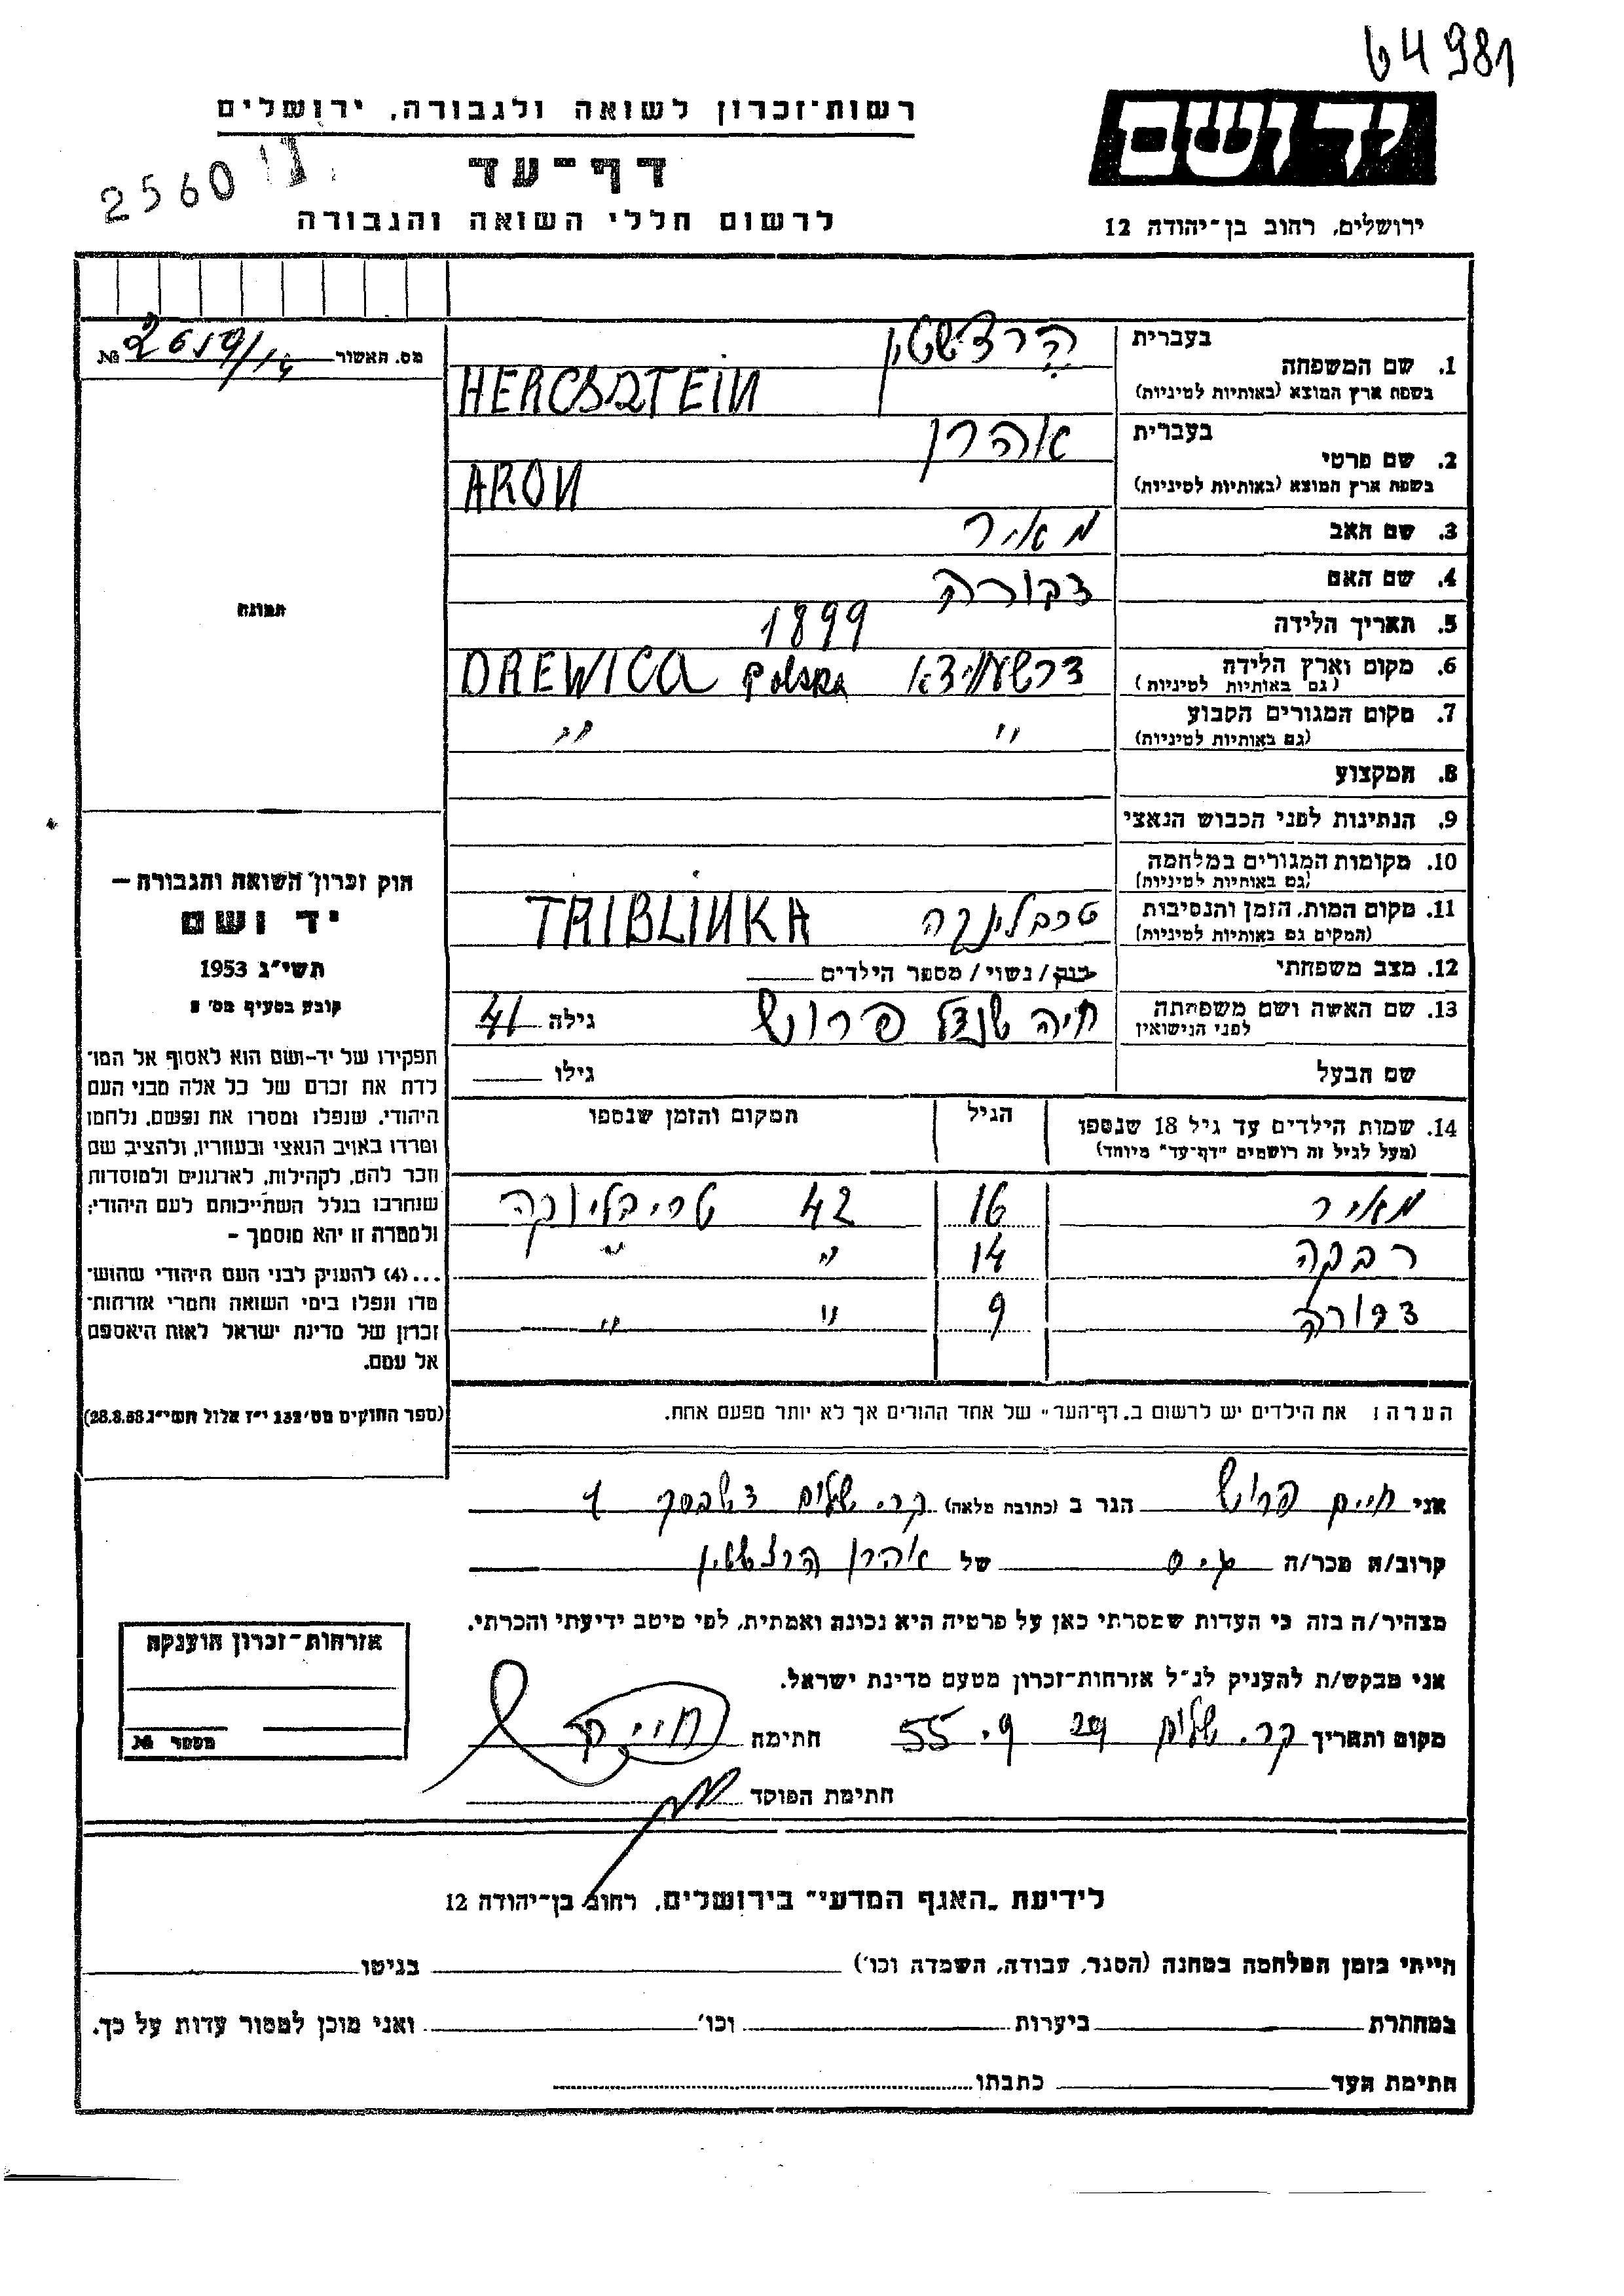 64981
רשות-זכרון לשואה ולגבורה, ירושלים
יד ושם
דף-עד
2560
לרשום חללי השואה והגבורה
ירושלים, רחוב בן-יהודה 12
מס. האשור № 2619/14
1. שם המשפחה
בעברית הרצשטין
בשפת ארץ המוצא (באותיות לטיניות) HERCSZTEIN
2. שם פרטי
בעברית אהרן
בשפת ארץ המוצא (באותיות לטיניות) ARON
3. שם האב מאיר
4. שם האם דבורה
5. תאריך הלידה 1899
6. מקום וארץ הלידה
(גם באותיות לטיניות) Polska DREWICA
7. מקום המגורים הקבוע " "
(גם באותיות לטיניות)
8. המקצוע
9. הנתינות לפני הכבוש הנאצי
10. מקומות המגורים במלחמה
(גם באותיות לטיניות)
11. מקום המות, הזמן והנסיבות טרבלינקה TRIBLINKA
(המקים גם באותיות לטיניות)
12. מצב משפחתי רווק/נשוי/מספר הילדים
13. שם האשה ושם משפחתה חיה שנדל פרוש גילה 41
לפני הנישואין
שם הבעל גילו
14. שמות הילדים עד גיל 18 שנספו הגיל המקום והזמן שנספו
(מעל לגיל זה רושמים "דף-עד" מיוחד)
מאיר 16 42 טריבלינקה
רבקה 14 " "
דבורה 9 " "
הערה: את הילדים יש לרשום ב„דף-העד" של אחד ההורים אך לא יותר מפעם אחת.
תמונה
חוק זכרון השואה והגבורה –
יד ושם
תשי"ג 1953
קובע בסעיף מס' 2
תפקידו של יד-ושם הוא לאסוף אל המו־
לדת את זכרם של כל אלה מבני העם
היהודי, שנפלו ומסרו את נפשם, נלחמו
ומרדו באויב הנאצי ובעוזריו, ולהציב שם
וזכר להם, לקהילות, לארגונים ולמוסדות
שנחרבו בגלל השתייכותם לעם היהודי;
ולמטרה זו יהא מוסמך –
...(4) להעניק לבני העם היהודי שהוש־
מדו ונפלו בימי השואה והמרי אזרחות־
זכרון של מדינת ישראל לאות היאספם
אל עמם.
(ספר החוקים מס' 132 י"ז אלול תשי"ג 28.8.53)
אני חיים פרוש הגר ב (כתובת מלאה) קר. שלום
קרוב/ה מכר/ה גיס של אהרן הרצשטין
מצהיר/ה בזה כי העדות שמסרתי כאן על פרטיה היא נכונה ואמתית, לפי מיטב ידיעתי והכרתי.
אני מבקש/ת להעניק לנ"ל אזרחות-זכרון מטעם מדינת ישראל.
מקום ותאריך קר. שלום 29 9. 55 חתימה
חתימת הפוקד
אזרחות-זכרון הוענקה
מספר №
לידיעת „האגף המדעי" בירושלים, רחוב בן-יהודה 12
הייתי בזמן המלחמה במחנה (הסגר, עבודה, השמדה וכו') בגיטו
במחתרת ביערות וכו' ואני מוכן למסור עדות על כך.
חתימת העד כתבתו